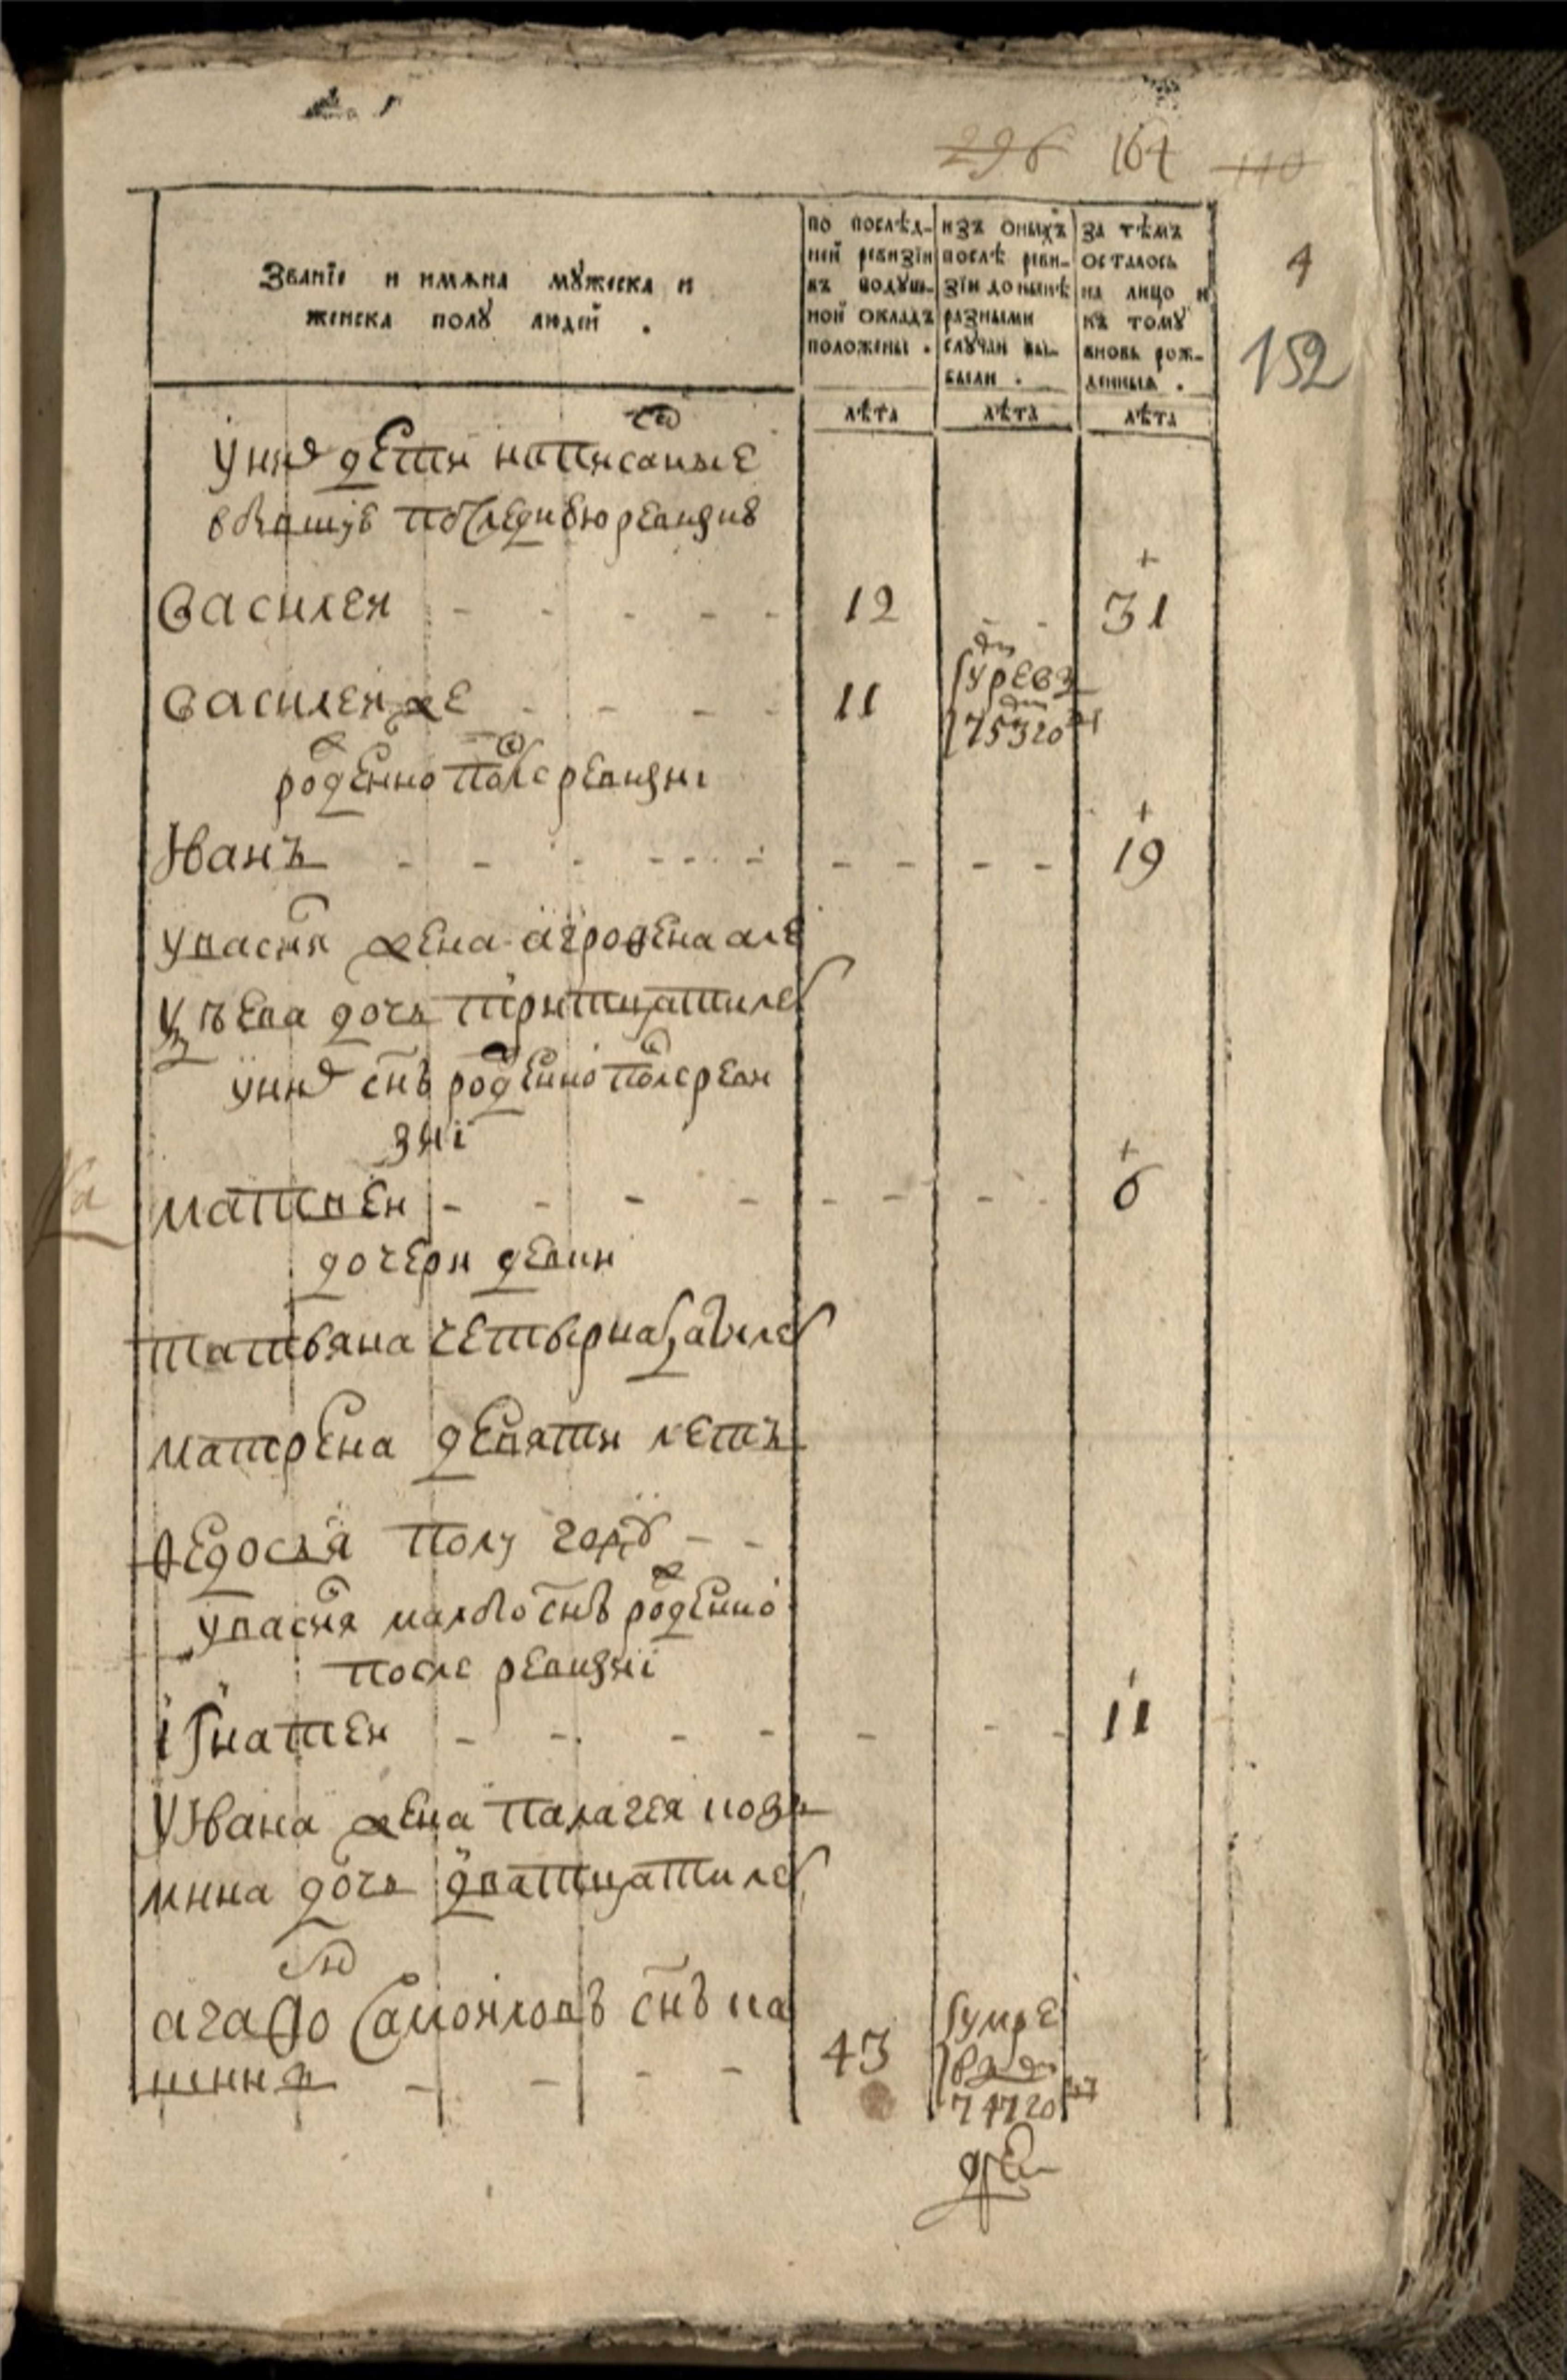 296 164 110
4
152
Званїе и имѧна мꙋжеска и
женска полꙋ людей .
по послѣд-
ней ревизїи
въ подꙋш-
ной окладъ
положены .
изъ оныхъ
послѣ реви-
зїи до нынѣ
разными
слꙋчаи вы-
были .
за тѣмъ
осталось
на лицо и
къ томꙋ
вновь рож-
денныѧ .
лѣта лѣта лѣта
у них дети написаные
ревизию
василей 12 31
василей же 11
рожденно после ревизиі
Иванъ 19
у василя жена агрофена але
дочь тритцати лет
у них снъ рожденно после реви
зиі
матвей 6
дочери девки
татьяна четырнатцати лет
матрена девяти летъ
федосья полу году
у василя снъ рожденно
после ревизиі
ігнатей 11
у Ивана жена палагея козь
мина дочь дватцати лет
агафо самойловъ снъ
43
умре
747 году